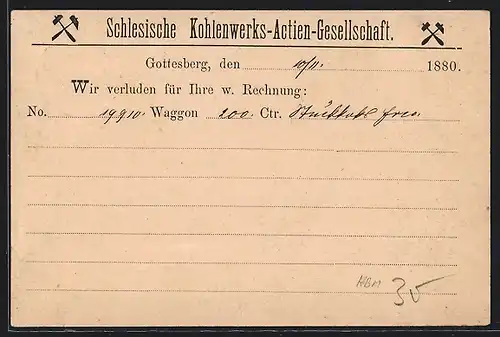 Schlesische Kohlenwerks-Actien-Gesellschaft.
Gottesberg, den 10/11. 1880.
Wir verluden für Ihre w. Rechnung:
No. 19910. Waggon 200. Ctr.
35